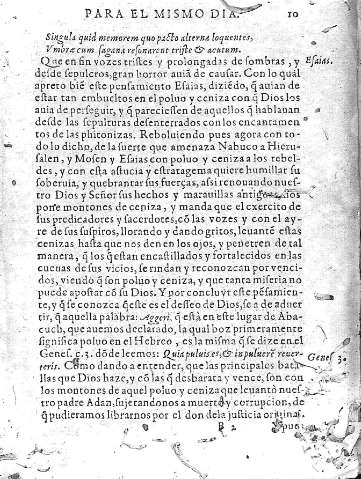 PARA EL MISMO DIA. 10
Singula quid memorem quo pacto alterna loquentes,
Vmbræ cum sagana resonarent triste & acutum.
Que en sin vozes tristes y prolongadas de sombras, y Esaias.
desde sepulcros, gran horror auia de causar. Con lo qual
apreto biē este pensamiento Esaias, diziēdo, q̄ auian de
estar tan embueltos en el poluo y ceniza con q̄ Dios los
auia de perseguir, y q̄ pareciessen de aquellos q̄ hablauan
desde las sepulturas desenterrados con los encantamen
tos de las phitonizas. Reboluiendo pues agora con to-
do lo dicho, de la suerte que amenaza Nabuco a Hieru-
salen, y Moysen y Esaias con poluo y ceniza a los rebel-
des, y con esta astucia y estratagema quiere humillar su
soberuia, y quebrantar sus fuerças, assi renouando nues-
tro Dios y Señor sus hechos y marauillas nos
pone montones de ceniza, y manda que el exercito de
sus predicadores y sacerdotes, cō las vozes y con el ay-
re de sus suspiros, llorando y dando gritos, leuantē estas
cenizas hasta que nos den en los ojos, y penetren de tal
manera, q̄ los q̄ estan encastillados y fortalecidos en las
cueuas de sus vicios, se rindan y reconozcan por venci-
dos, viendo q̄ son poluo y ceniza, y que tanta miseria no
puede apostar cō su Dios. Y por concluyr este pēsamien-
te, y q̄ se conozca q̄ este es el desseo de Dios, se a de aduer
tir, q̄ aquella palabra: Aggeri. q̄ està en este lugar de Aba
cuch, que auemos declarado, la qual boz primeramente
significa poluo en el Hebreo, es la misma q̄ se dize en el
Genes. c. 3. dōde leemos: Quia puluis es, & in puluerē reuer- Genes. 3.
teris. Como dando a entender, que las principales bata-
llas que Dios haze, y cō las q̄ desbarata y vence, son con
los montones de aquel poluo y ceniza que leuantò nues-
tro padre Adan, sujetandonos a muerte y corrupcion, de
q̄ pudieramos librarnos por el don de la justicia original.
B 2